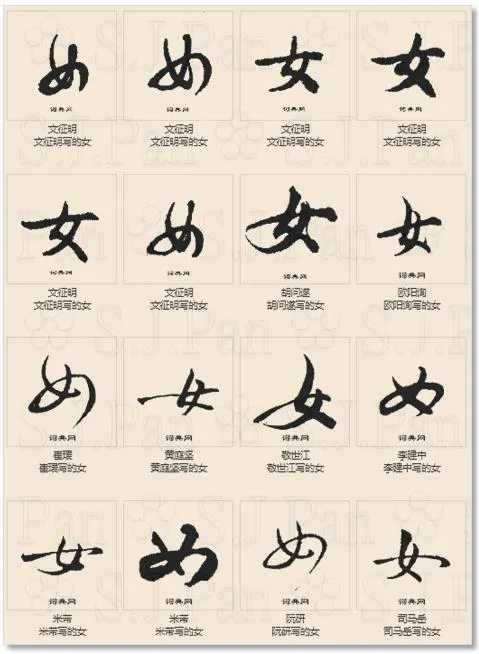 女 女 女 女
词典网 词典网 词典网 词典网
文征明 文征明 文征明 文征明
文征明写的女 文征明写的女 文征明写的女 文征明写的女
女 女 女 女
词典网 词典网 词典网 词典网
文征明 文征明 胡问遂 欧阳询
文征明写的女 文征明写的女 胡问遂写的女 欧阳询写的女
女 女 女 女
词典网 词典网 词典网 词典网
崔環 黄庭坚 敬世江 李建中
崔環写的女 黄庭坚写的女 敬世江写的女 李建中写的女
女 女 女 女
词典网 词典网 词典网 词典网
米芾 米芾 阮研 司马岳
米芾写的女 米芾写的女 阮研写的女 司马岳写的女
S.J.Pan